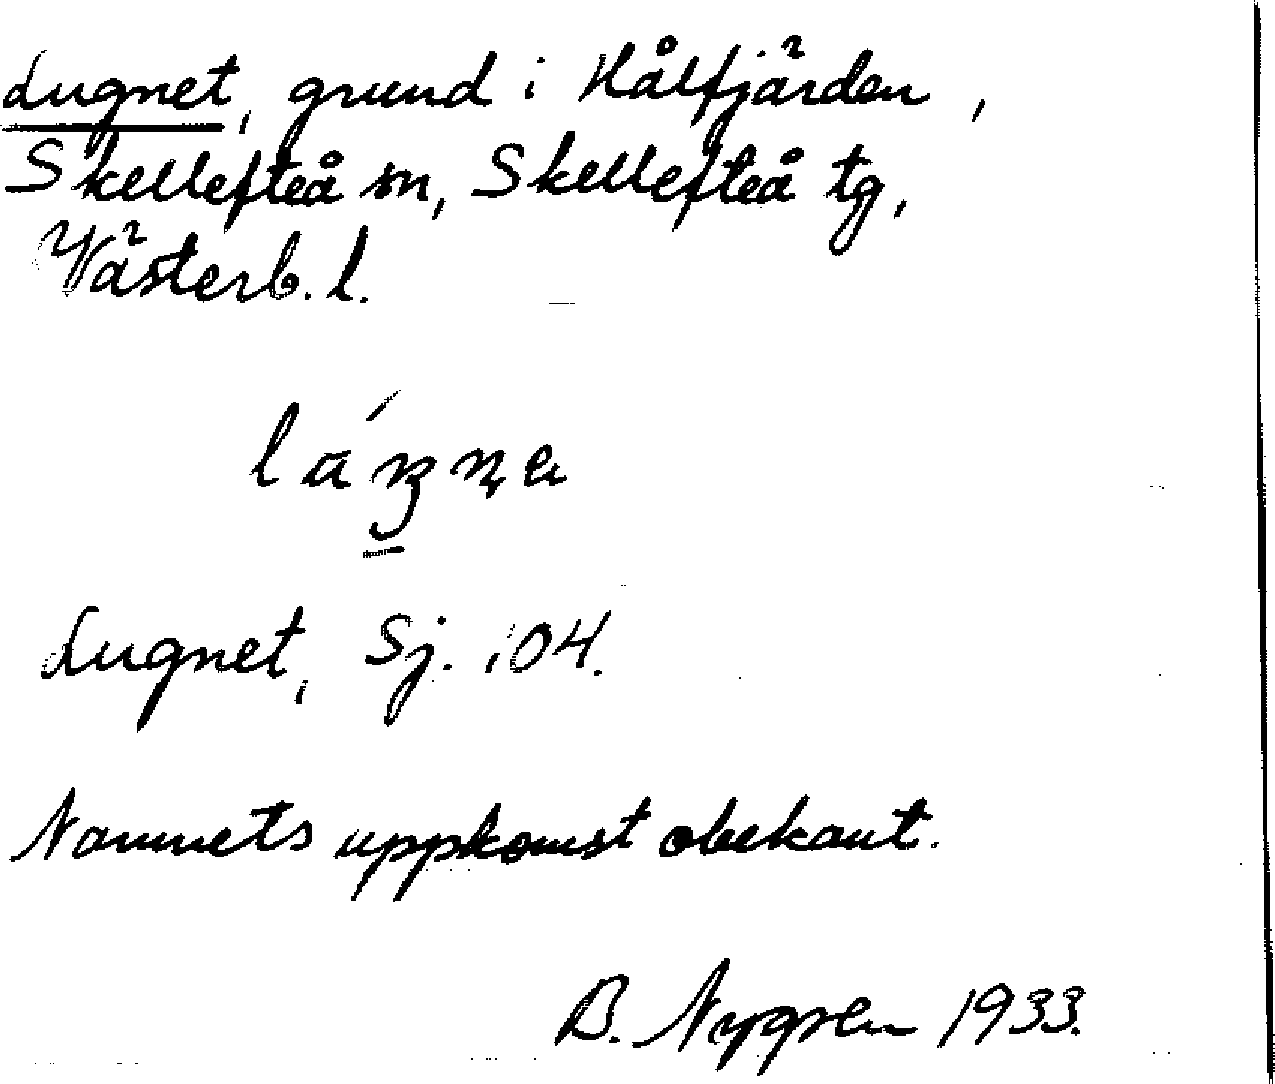 Lugnet, grund i Kålfjärden,
Skellefteå sn, Skellefteå tg,
Västerb. l.
Lugnet, Sj. 104.
Namnets uppkomst obekant.
B. Nygren 1933.